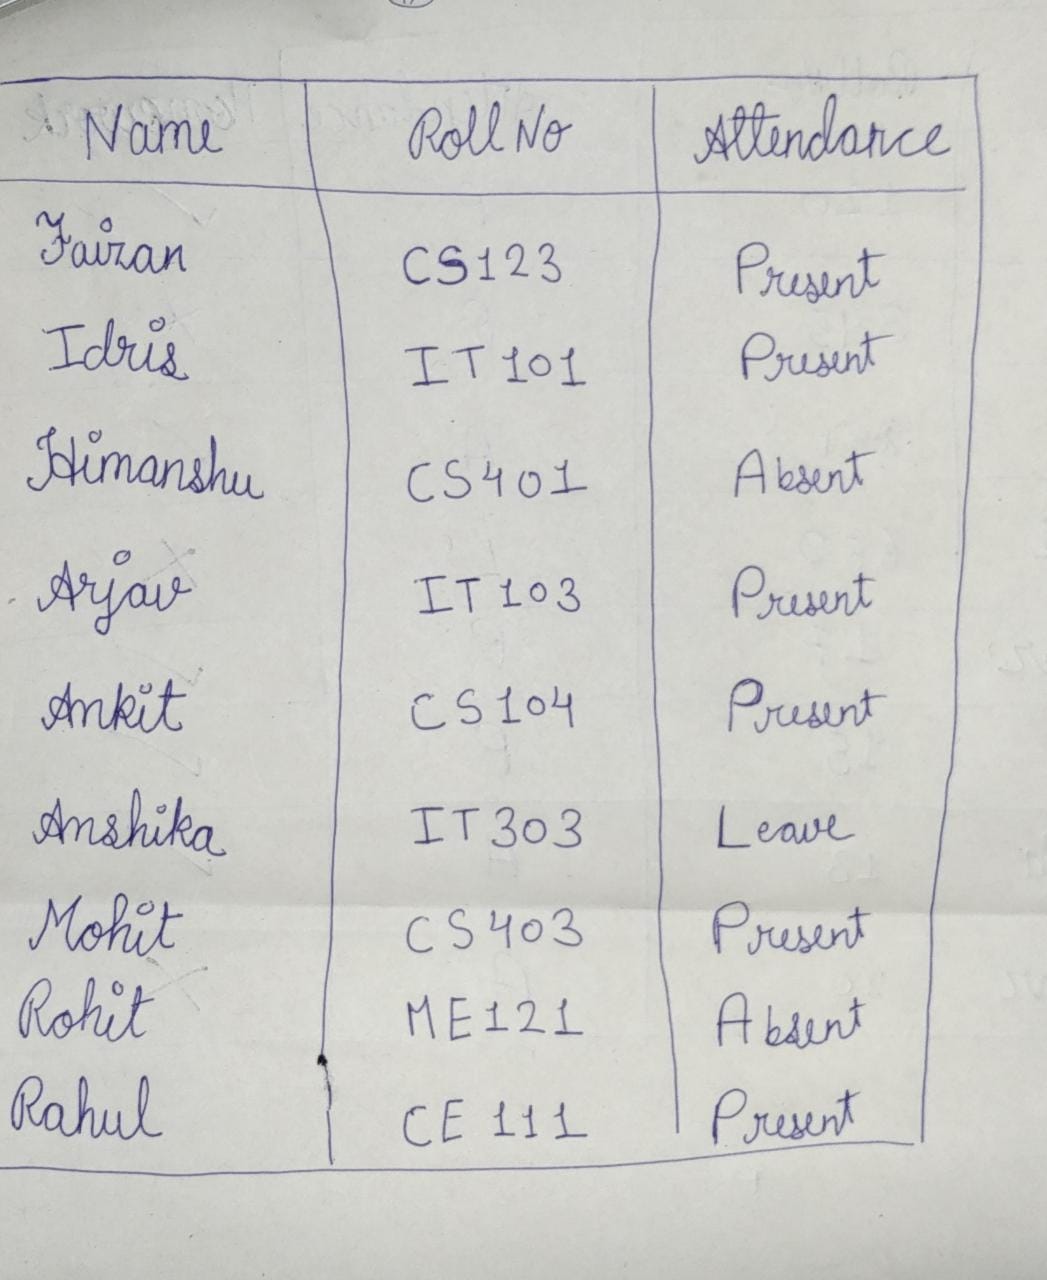 Name Roll No Attendance
Faizan CS123 Present
Idris IT101 Present
Himanshu CS401 Absent
Arjav IT103 Present
Ankit CS104 Present
Anshika IT303 Leave
Mohit CS403 Present
Rohit ME121 Absent
Rahul CE 111 Present